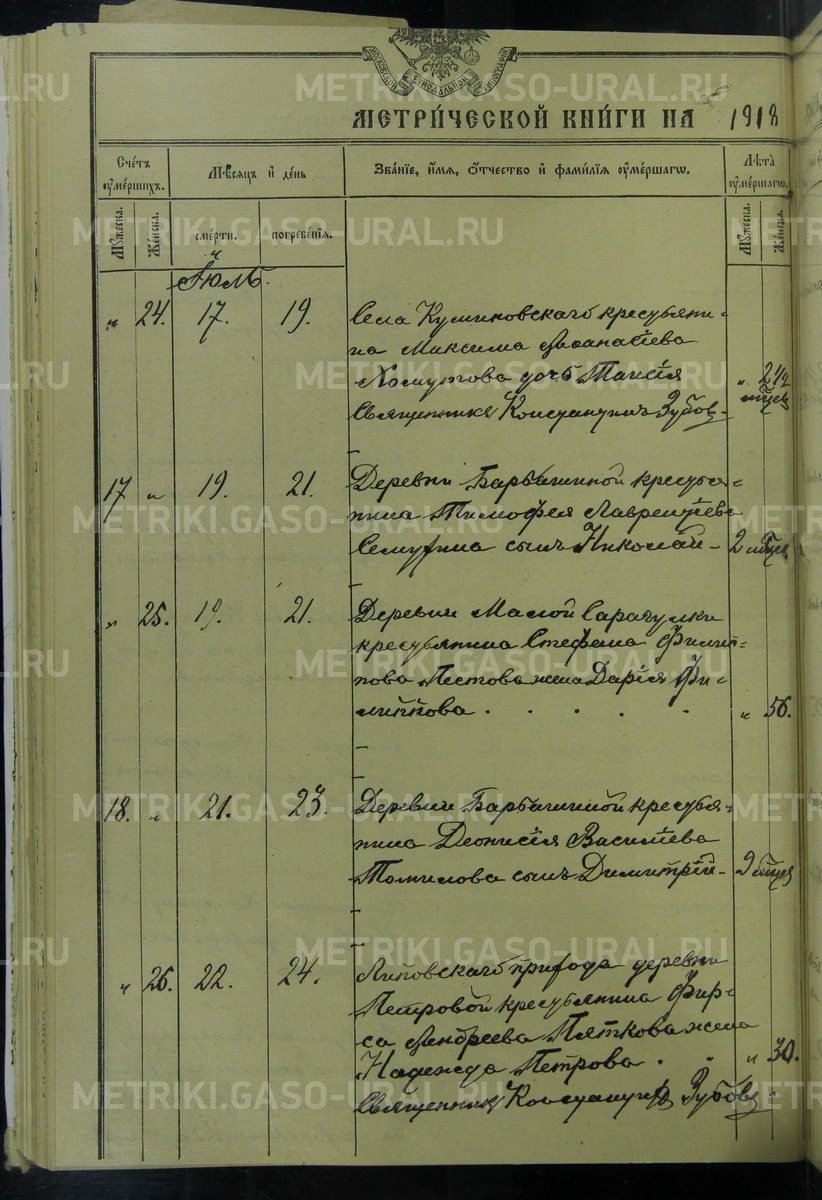 МОСКОВСКОЙ СѴНОДАЛЬНОЙ ТИПОГРАФІИ
МЕТРИ́ЧЕСКОЙ КНИ́ГИ НА 1918
Сче́тъ оу҆ме́ршихъ.
Мѣ́сяцъ и҆ де́нь
Зва́нїе, и҆́мя, ѻ҆́тчество и҆ фами́лїя оу҆ме́ршагѡ.
Лѣ́та оу҆ме́ршагѡ.
Мꙋ́жеска.
Же́нска.
сме́рти.
погребе́нїя.
Мꙋ́жеска.
Же́нска.
Іюль.
„ 24. 17. 19. Села Куминовскаго крестьяни-
на Максима Аѳанасіева
Хомутова дочь Таисія „ 2½
Священникъ Константинъ Зубовъ мѣсяц
17 „ 19. 21. Деревни Барбашиной крестья-
нина Тимофея Лаврентіева
сынъ Николай - 2 мѣсяц
„ 25. 19. 21. Деревни Малой Сарагулки
крестьянина Стефана Филип-
пова Пестова жена Дарія Фи-
липпова . . . . . „ 56.
18. „ 21. 23. Деревни Барбашиной крестья-
нина Діонисія Василіева
Томилова сынъ Димитрій - 9 мѣсяц
„ 26. 22. 24. Липовскаго прихода деревни
Петровой крестьянина Фир-
са Андреева Пяткова жена
Надежда Петрова . . „ 30.
Священникъ Константинъ Зубовъ
METRIKI.GASO-URAL.RU